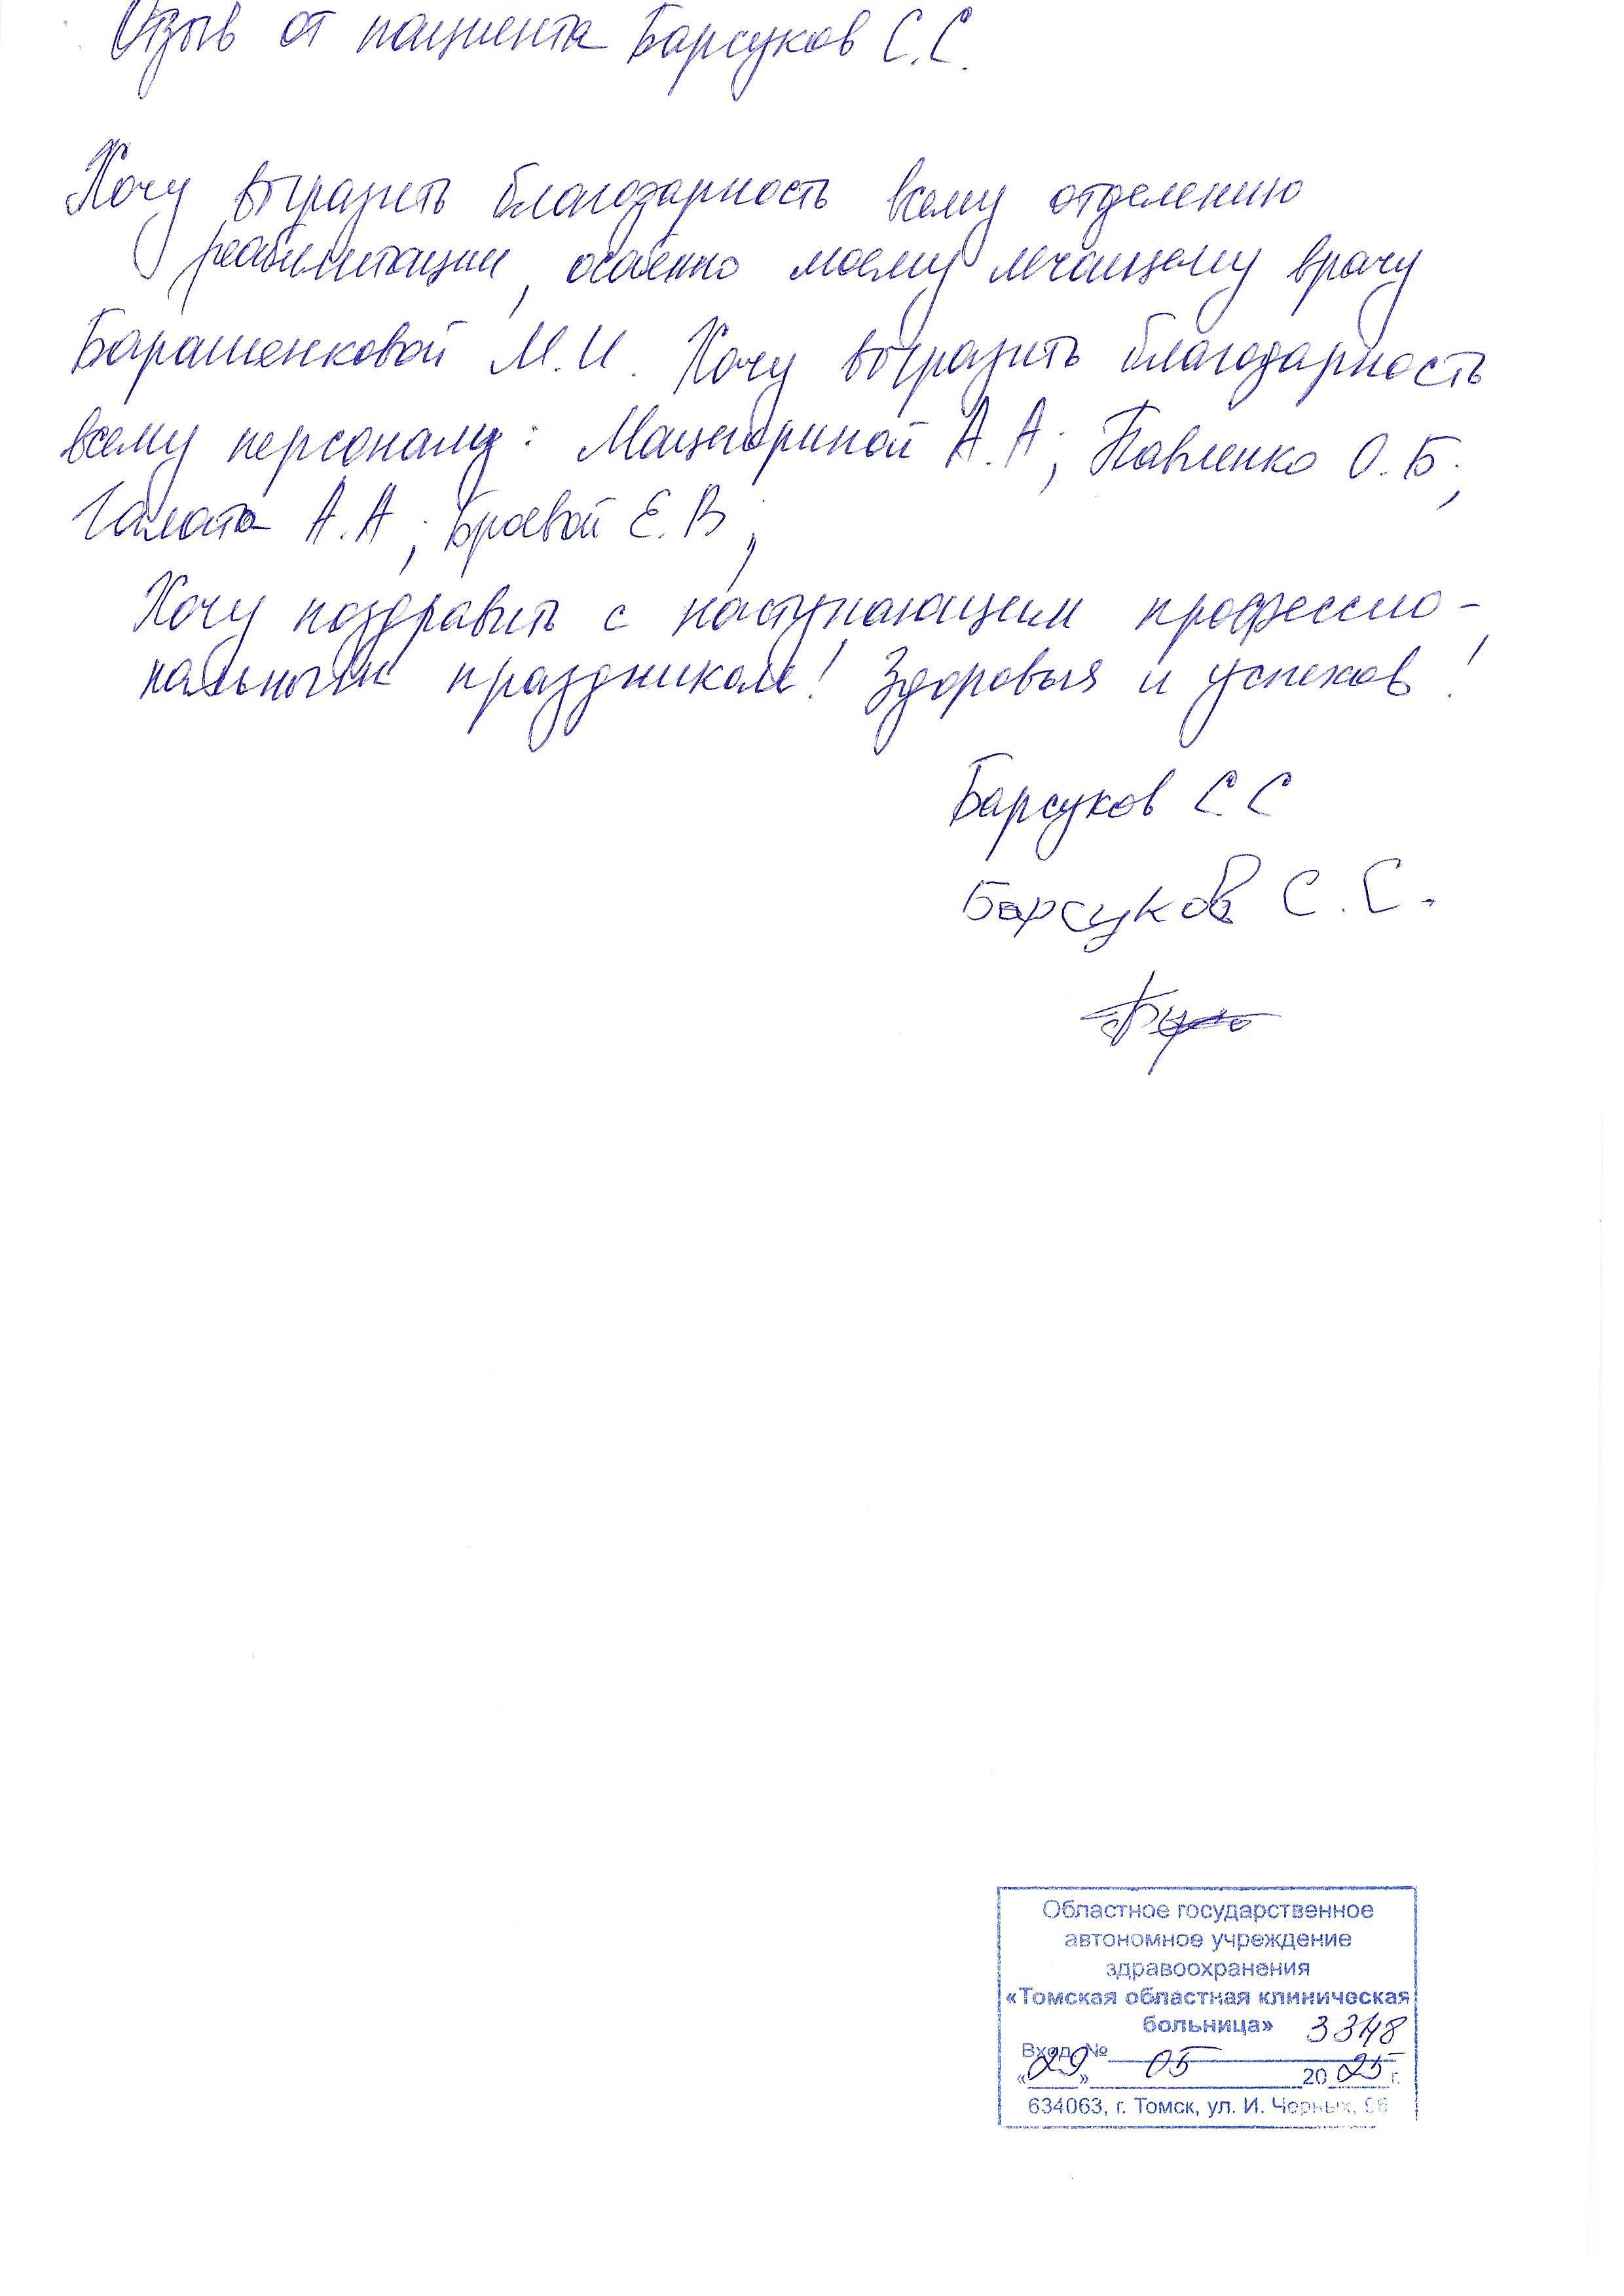 Отзыв от пациента Барсуков С.С.
Хочу выразить благодарность всему отделению
реабилитации, особенно моему лечащему врачу
Барашенковой М.И. Хочу выразить благодарность
всему персоналу: А.А; Павленко О.Б.;
Галата А.А; Броевой Е.В;
Хочу поздравить с наступающим профессио-
нальным праздником! Здоровья и успехов!
Барсуков С С
Барсуков С.С.
Областное государственное
автономное учреждение
здравоохранения
«Томская областная клиническая
больница» 3348
Вход. №
«29» 05 2025 г.
634063, г. Томск, ул. И. Черных, 96